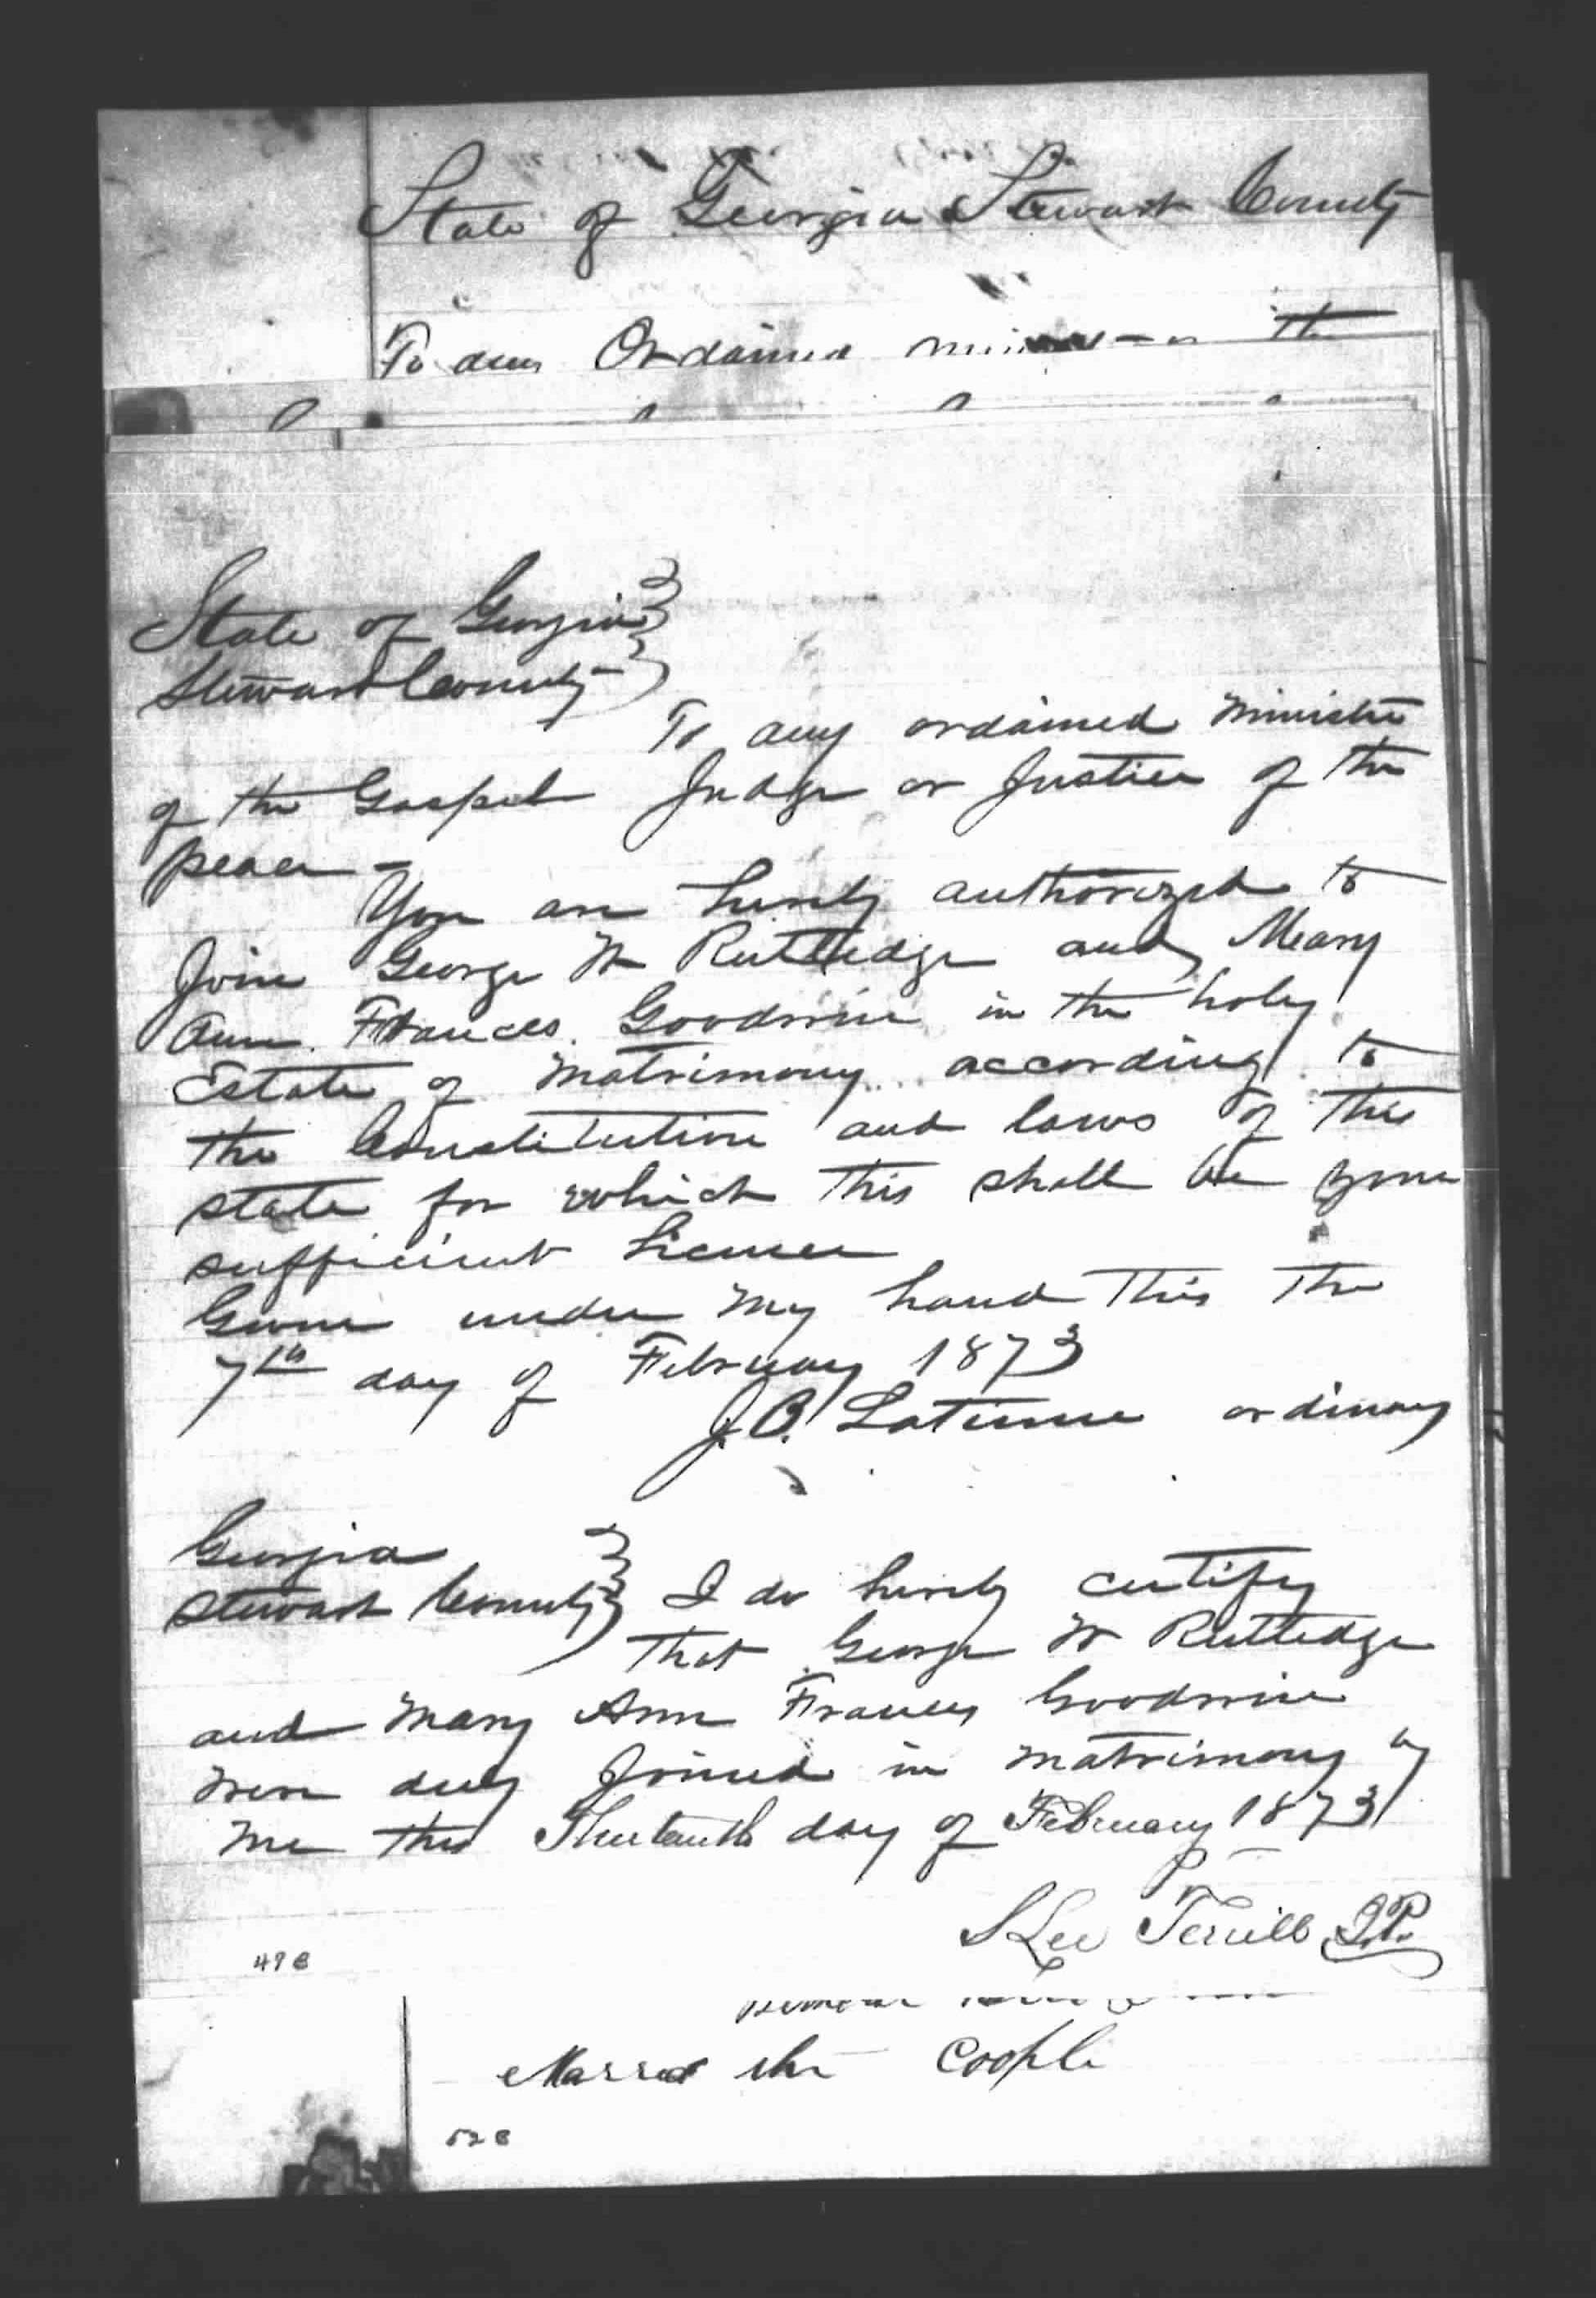 State of Georgia Stewart County
To any Ordained the
State of Georgia
Stewart County
To any ordained Minister
of the Gospel Judge or Justice of the
peace -
You are hereby authorized to
Join George W Rutledge and Mary
Ann Frances Goodwine in the holy
Estate of Matrimony according to
the Constitution and laws of this
state for which this shall be your
sufficient License
Given under My hand This The
7th day of February 1873
J.B. Latimer ordinary
Georgia
Stewart County I do hereby certify
That George W Rutledge
and Mary Ann Frances Goodwine
were duly Joined in Matrimony by
me this Thirteenth day of February 1873
S Lee Terrill J.P.
49 B
Married the Coople
52 B